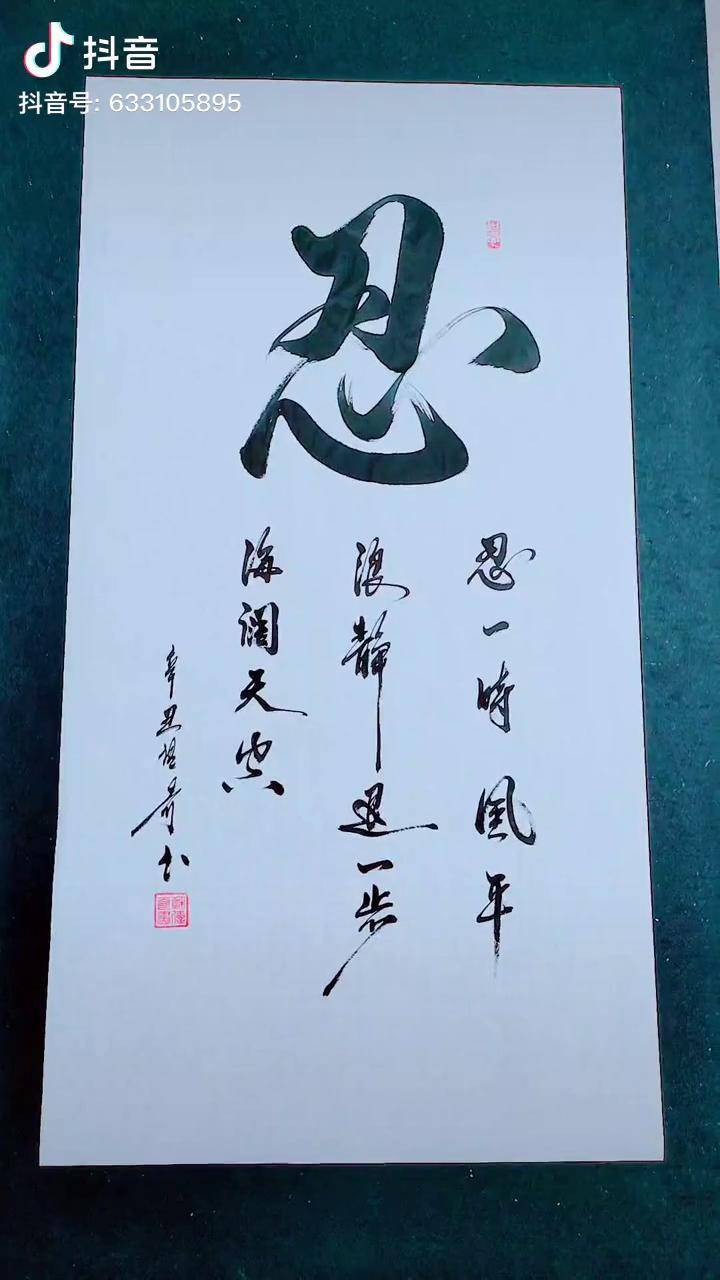 抖音
抖音号: 633105895
忍
忍一時風平
浪静退一步
海濶天空
辛丑书